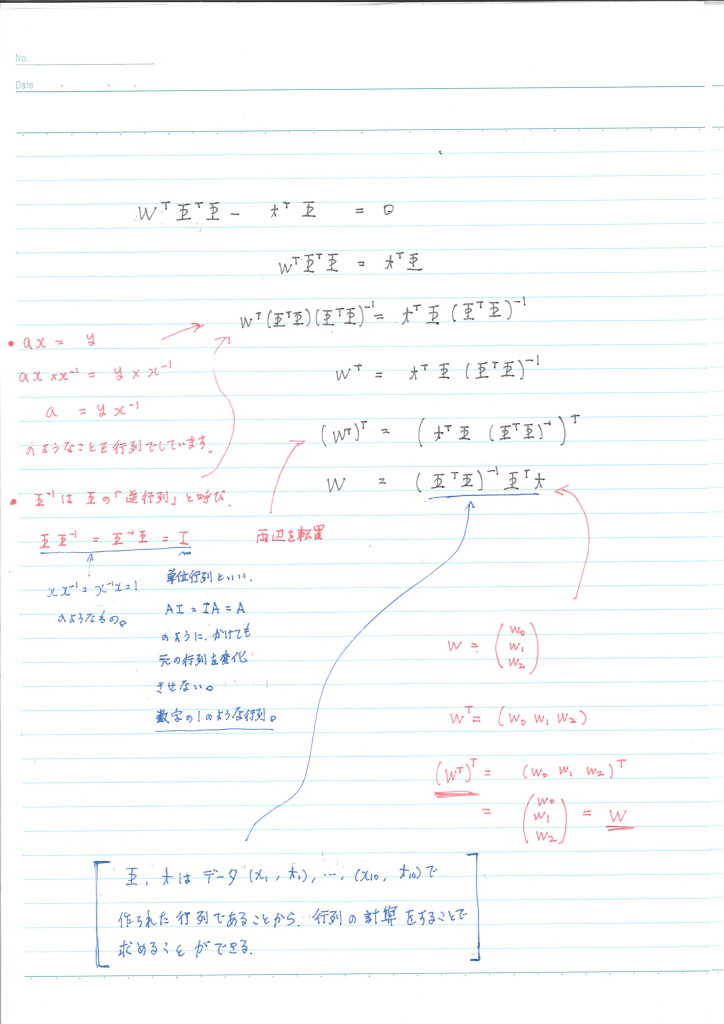 No.
Date
W^T Φ^T Φ - t^T Φ = 0
W^T Φ^T Φ = t^T Φ
W^T (Φ^T Φ) (Φ^T Φ)^-1 = t^T Φ (Φ^T Φ)^-1
W^T = t^T Φ (Φ^T Φ)^-1
(W^T)^T = (t^T Φ (Φ^T Φ)^-1)^T
W = (Φ^T Φ)^-1 Φ^T t
• ax = y
ax × x^-1 = y × x^-1
a = y x^-1
のようなことを行列でしています。
• Φ^-1 は Φ の「逆行列」と呼び、
Φ Φ^-1 = Φ^-1 Φ = I
両辺を転置
x x^-1 = x^-1 x = 1
のようなもの。
単位行列といい、
AI = IA = A
のように、かけても
元の行列を変化
させない。
数字の1のような行列。
W = (w0 w1 w2)
W^T = (w0 w1 w2)
(W^T)^T = (w0 w1 w2)^T
= (w0 w1 w2) = W
Φ, t は データ (x1, t1), …, (x10, t10) で
作られた行列であることから、行列の計算をすることで
求めることができる。